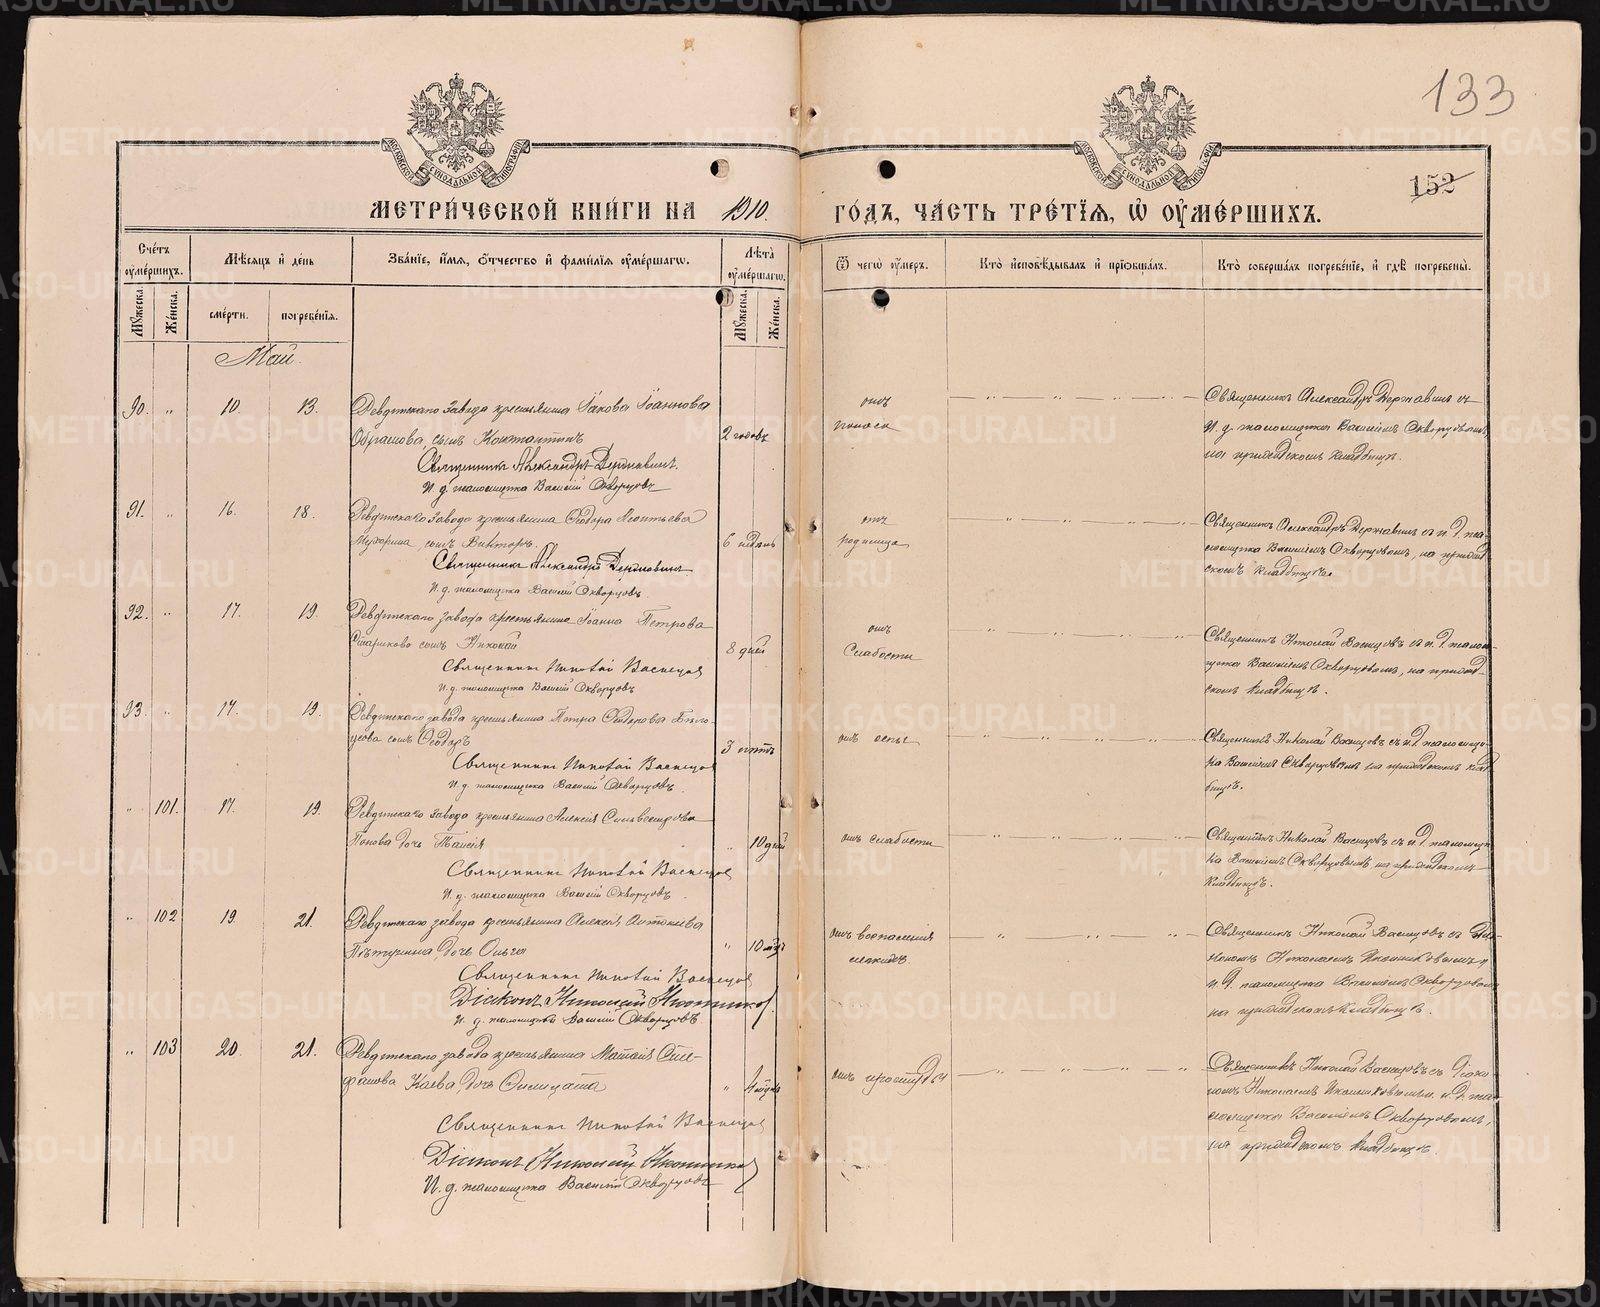 133
152
МЕТРИ́ЧЕСКОЙ КНИ́ГИ НА 1910. ГО́ДЪ, ЧА́СТЬ ТРЕ́ТІѦ, Ѡ ОУМЕ́РШИХЪ.
Сче́тъ оуме́ршихъ.
Мꙋ́жеска.
Же́нска.
Мѣ́сяцъ и де́нь
сме́рти.
погребе́нія.
Зва́ніе, и́мя, о́тчество и фами́лія оуме́ршагѡ.
Лѣта̀ оуме́ршагѡ.
Мꙋ́жеска.
Же́нска.
Ѿ чегѡ̀ оу́меръ.
Кто̀ исповѣ́дывалъ и прїѡбща́лъ.
Кто̀ соверша́лъ погребе́ніе, и гдѣ̀ погребены̀.
Май.
90. " 10. 13. Ревдинскаго завода крестьянина Іакова Іоаннова
сынъ Константинъ 2 годовъ отъ поноса
Священникъ Александръ Державинъ.
И. д. псаломщика Василій Скворцовъ
Священникъ Александръ Державинъ съ
и. д. псаломщика Василіемъ Скворцовымъ,
на приходскомъ кладбищѣ.
91. " 16. 18. Ревдинскаго завода крестьянина Ѳеодора Леонтьева
сынъ Викторъ. 6 недѣль отъ родимца
Священникъ Александръ Державинъ.
И. д. псаломщика Василій Скворцовъ.
Священникъ Александръ Державинъ съ и. д. пса-
ломщика Василіемъ Скворцовымъ, на приход-
скомъ кладбищѣ.
92. " 17. 19. Ревдинскаго завода крестьянина Іоанна Петрова
Старикова сынъ Николай 8 дней отъ слабости
Священникъ Николай Васнецовъ
И. д. псаломщика Василій Скворцовъ
Священникъ Николай Васнецовъ съ и. д. псалом-
щика Василіемъ Скворцовымъ, на приход-
скомъ кладбищѣ.
93. " 17. 19. Ревдинскаго завода крестьянина Петра
сынъ Ѳеодоръ 3 лѣтъ отъ оспы
Священникъ Николай Васнецовъ
И. д. псаломщика Василій Скворцовъ.
Священникъ Николай Васнецовъ съ и. д. псаломщи-
ка Василіемъ Скворцовымъ на приходскомъ клад-
бищѣ.
" 101. 17. 19. Ревдинскаго завода крестьянина Алексія Сильвестрова
Попова дочь Таисія " 10 дней отъ слабости
Священникъ Николай Васнецовъ
И. д. псаломщика Василій Скворцовъ.
Священникъ Николай Васнецовъ съ и. д. псаломщи-
ка Василіемъ Скворцовымъ на приходскомъ
кладбищѣ.
" 102 19. 21. Ревдинскаго завода крестьянина Алексія
дочь Ольга " 10 отъ воспаленія
Священникъ Николай Васнецовъ
Діаконъ Николай
И. д. псаломщика Василій Скворцовъ
Священникъ Николай Васнецовъ съ діа-
кономъ Николаемъ и
и. д. псаломщика Василіемъ Скворцовымъ
на приходскомъ кладбищѣ.
" 103 20. 21. Ревдинскаго завода крестьянина Сте-
фанова дочь " отъ простуды
Священникъ Николай Васнецовъ
Діаконъ Николай
И. д. псаломщика Василій Скворцовъ
Священникъ Николай Васнецовъ съ діако-
номъ Николаемъ и. д. пса-
ломщика Василіемъ Скворцовымъ,
на приходскомъ кладбищѣ.
METRIKI.GASO-URAL.RU